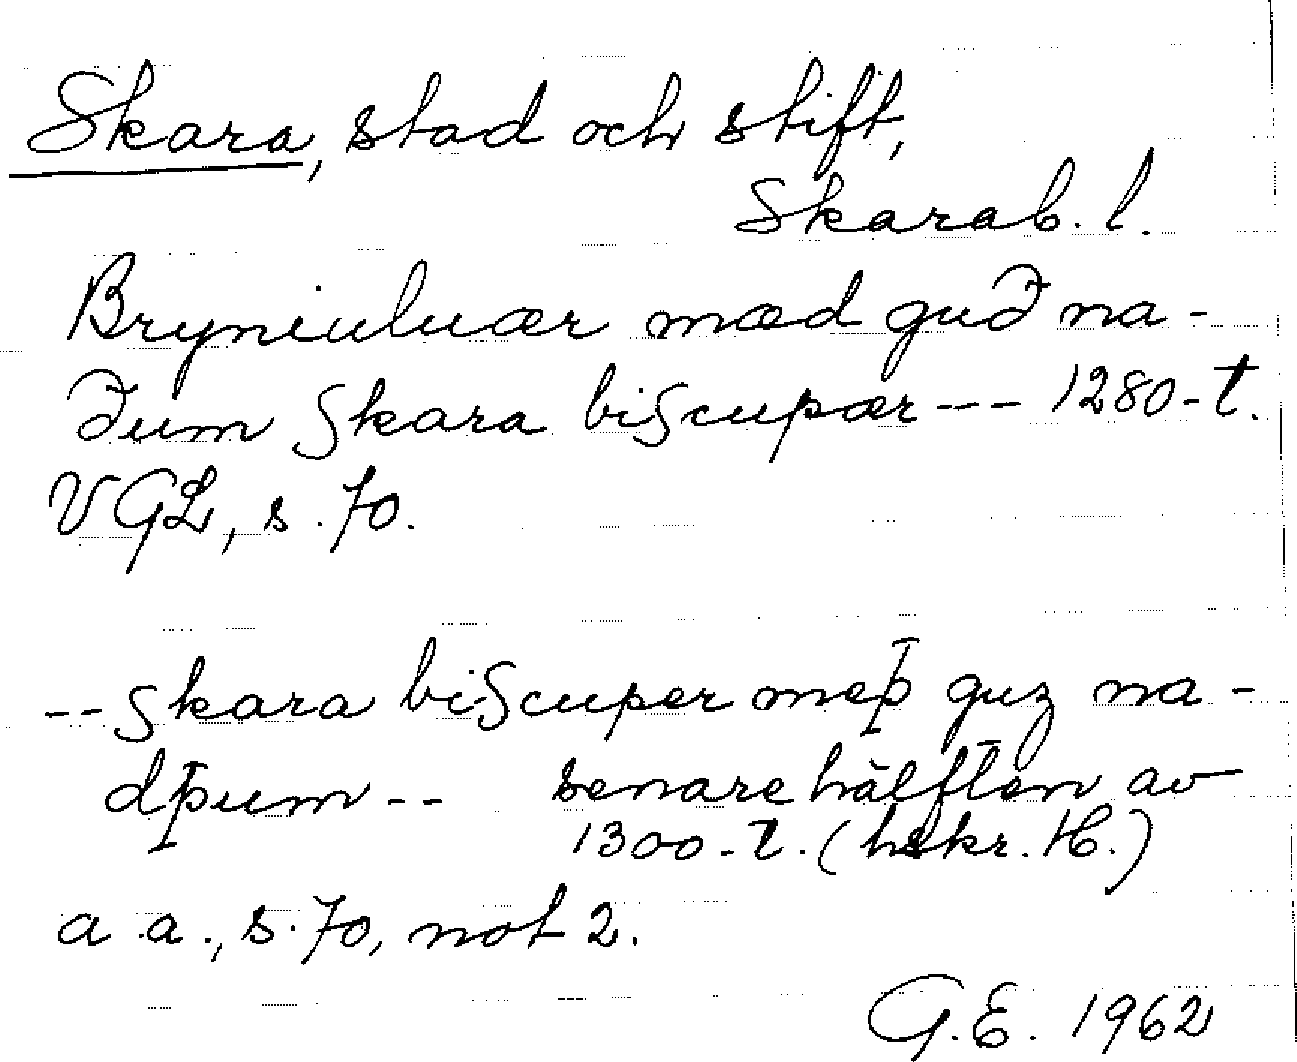 Skara, stad och stift,
Skarab. l.
Bryniuluær mæd guð na-
ðum skara biscupær --- 1280-t.
VGL, s. 70.
-- skara biscuper meþ guz na-
dþum -- senare hälften av
1300-t. (hskr. H.)
a. a., s. 70, not 2.
G.E. 1962